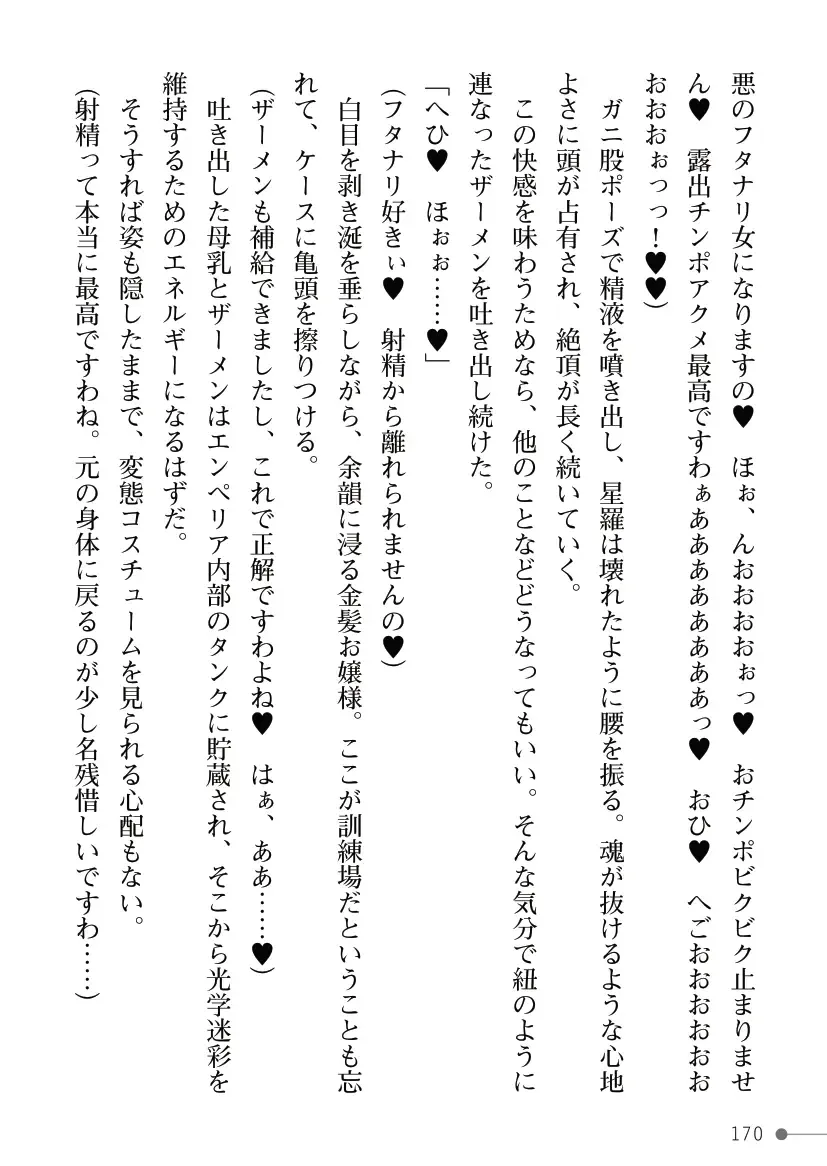 悪のフタナリ女になりますの♥　ほぉ、んおおおおぉっ♥　おチンポビクビク止まりませ
ん♥　露出チンポアクメ最高ですわぁああああああああっ♥　おひ♥　へごおおおおおお
おおおぉっっ！♥♥）
　ガニ股ポーズで精液を噴き出し、星羅は壊れたように腰を振る。魂が抜けるような心地
よさに頭が占有され、絶頂が長く続いていく。
　この快感を味わうためなら、他のことなどどうなってもいい。そんな気分で紐のように
連なったザーメンを吐き出し続けた。
「へひ♥　ほぉぉ……♥」
（フタナリ好きぃ♥　射精から離れられませんの♥）
　白目を剥き涎を垂らしながら、余韻に浸る金髪お嬢様。ここが訓練場だということも忘
れて、ケースに亀頭を擦りつける。
（ザーメンも補給できましたし、これで正解ですわよね♥　はぁ、ああ……♥）
　吐き出した母乳とザーメンはエンペリア内部のタンクに貯蔵され、そこから光学迷彩を
維持するためのエネルギーになるはずだ。
　そうすれば姿も隠したままで、変態コスチュームを見られる心配もない。
（射精って本当に最高ですわね。元の身体に戻るのが少し名残惜しいですわ……）
170